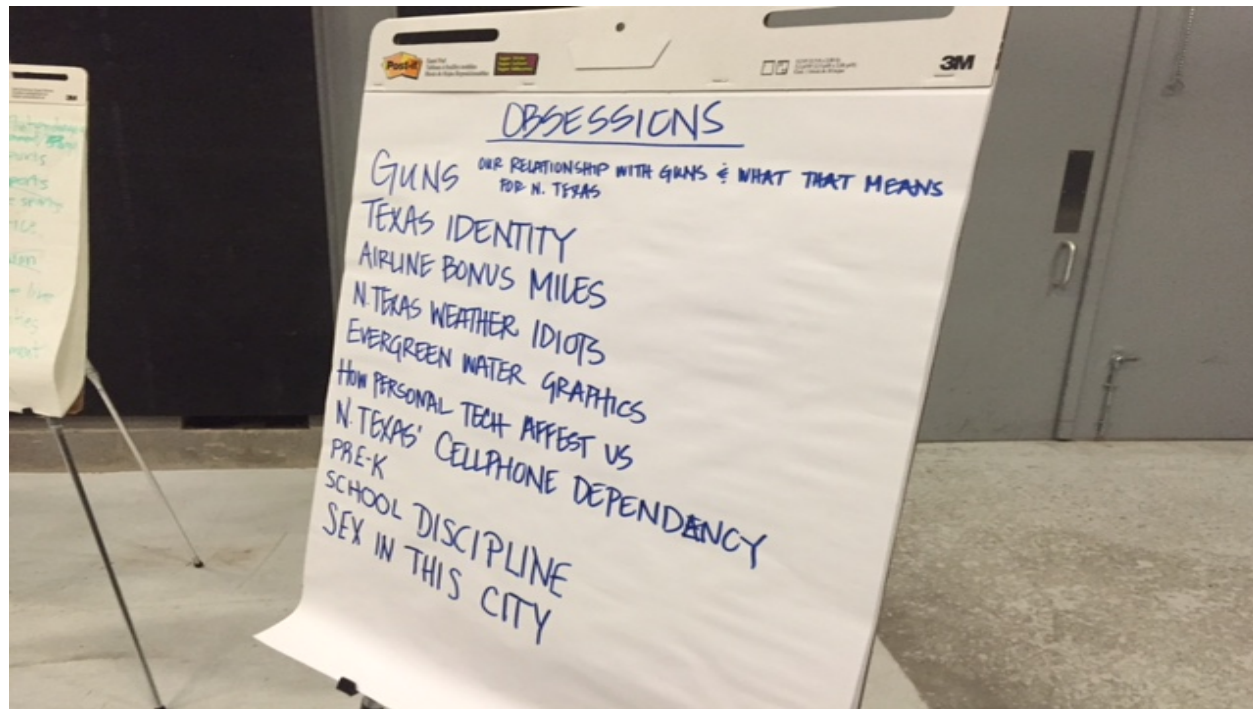 Post-it
3M
OBSESSIONS
GUNS OUR RELATIONSHIP WITH GUNS & WHAT THAT MEANS
FOR N. TEXAS
TEXAS IDENTITY
AIRLINE BONUS MILES
N. TEXAS WEATHER IDIOTS
EVERGREEN WATER GRAPHICS
HOW PERSONAL TECH AFFEST US
N. TEXAS' CELLPHONE DEPENDENCY
PRE-K
SCHOOL DISCIPLINE
SEX IN THIS CITY